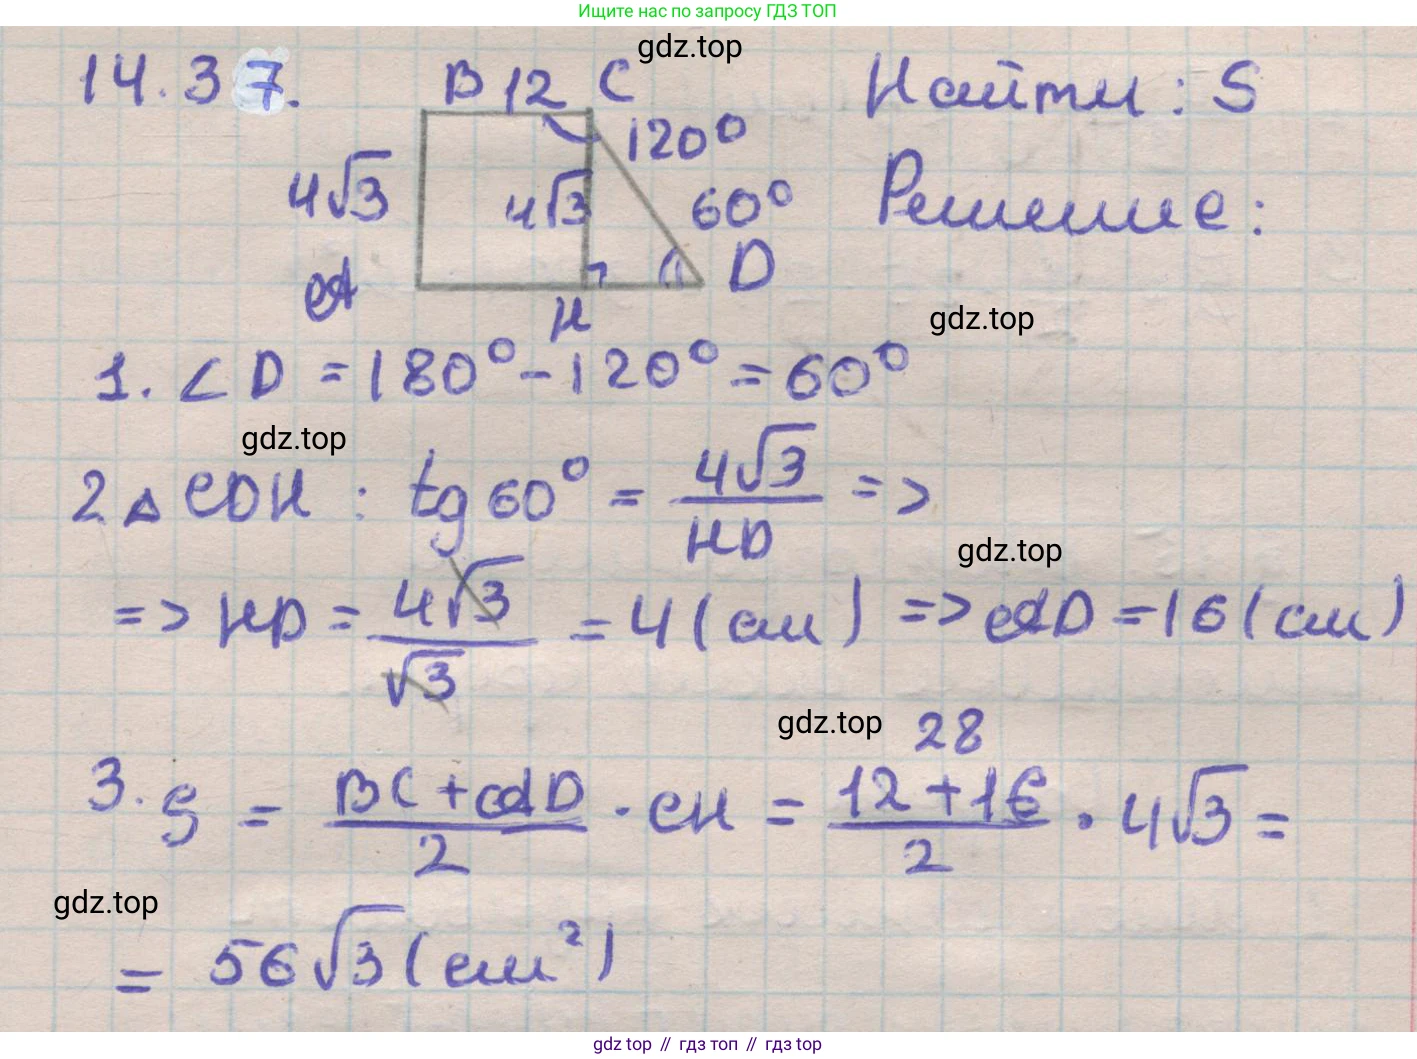 Ищите нас по запросу ГДЗ ТОП
gdz.top
14.37.
B 12 C
Найти: S
120°
4√3
4√3
60°
Решение:
A
D
H
gdz.top
1. ∠D = 180° - 120° = 60°
gdz.top
2 △ CDH : tg 60° = 4√3 / HD =>
gdz.top
=> HD = 4√3 / √3 = 4 (см) => AD = 16 (см)
gdz.top
28
3. S = BC + AD / 2 · CH = 12 + 16 / 2 · 4√3 =
gdz.top
= 56√3 (см²)
gdz.top // гдз топ // гдз top